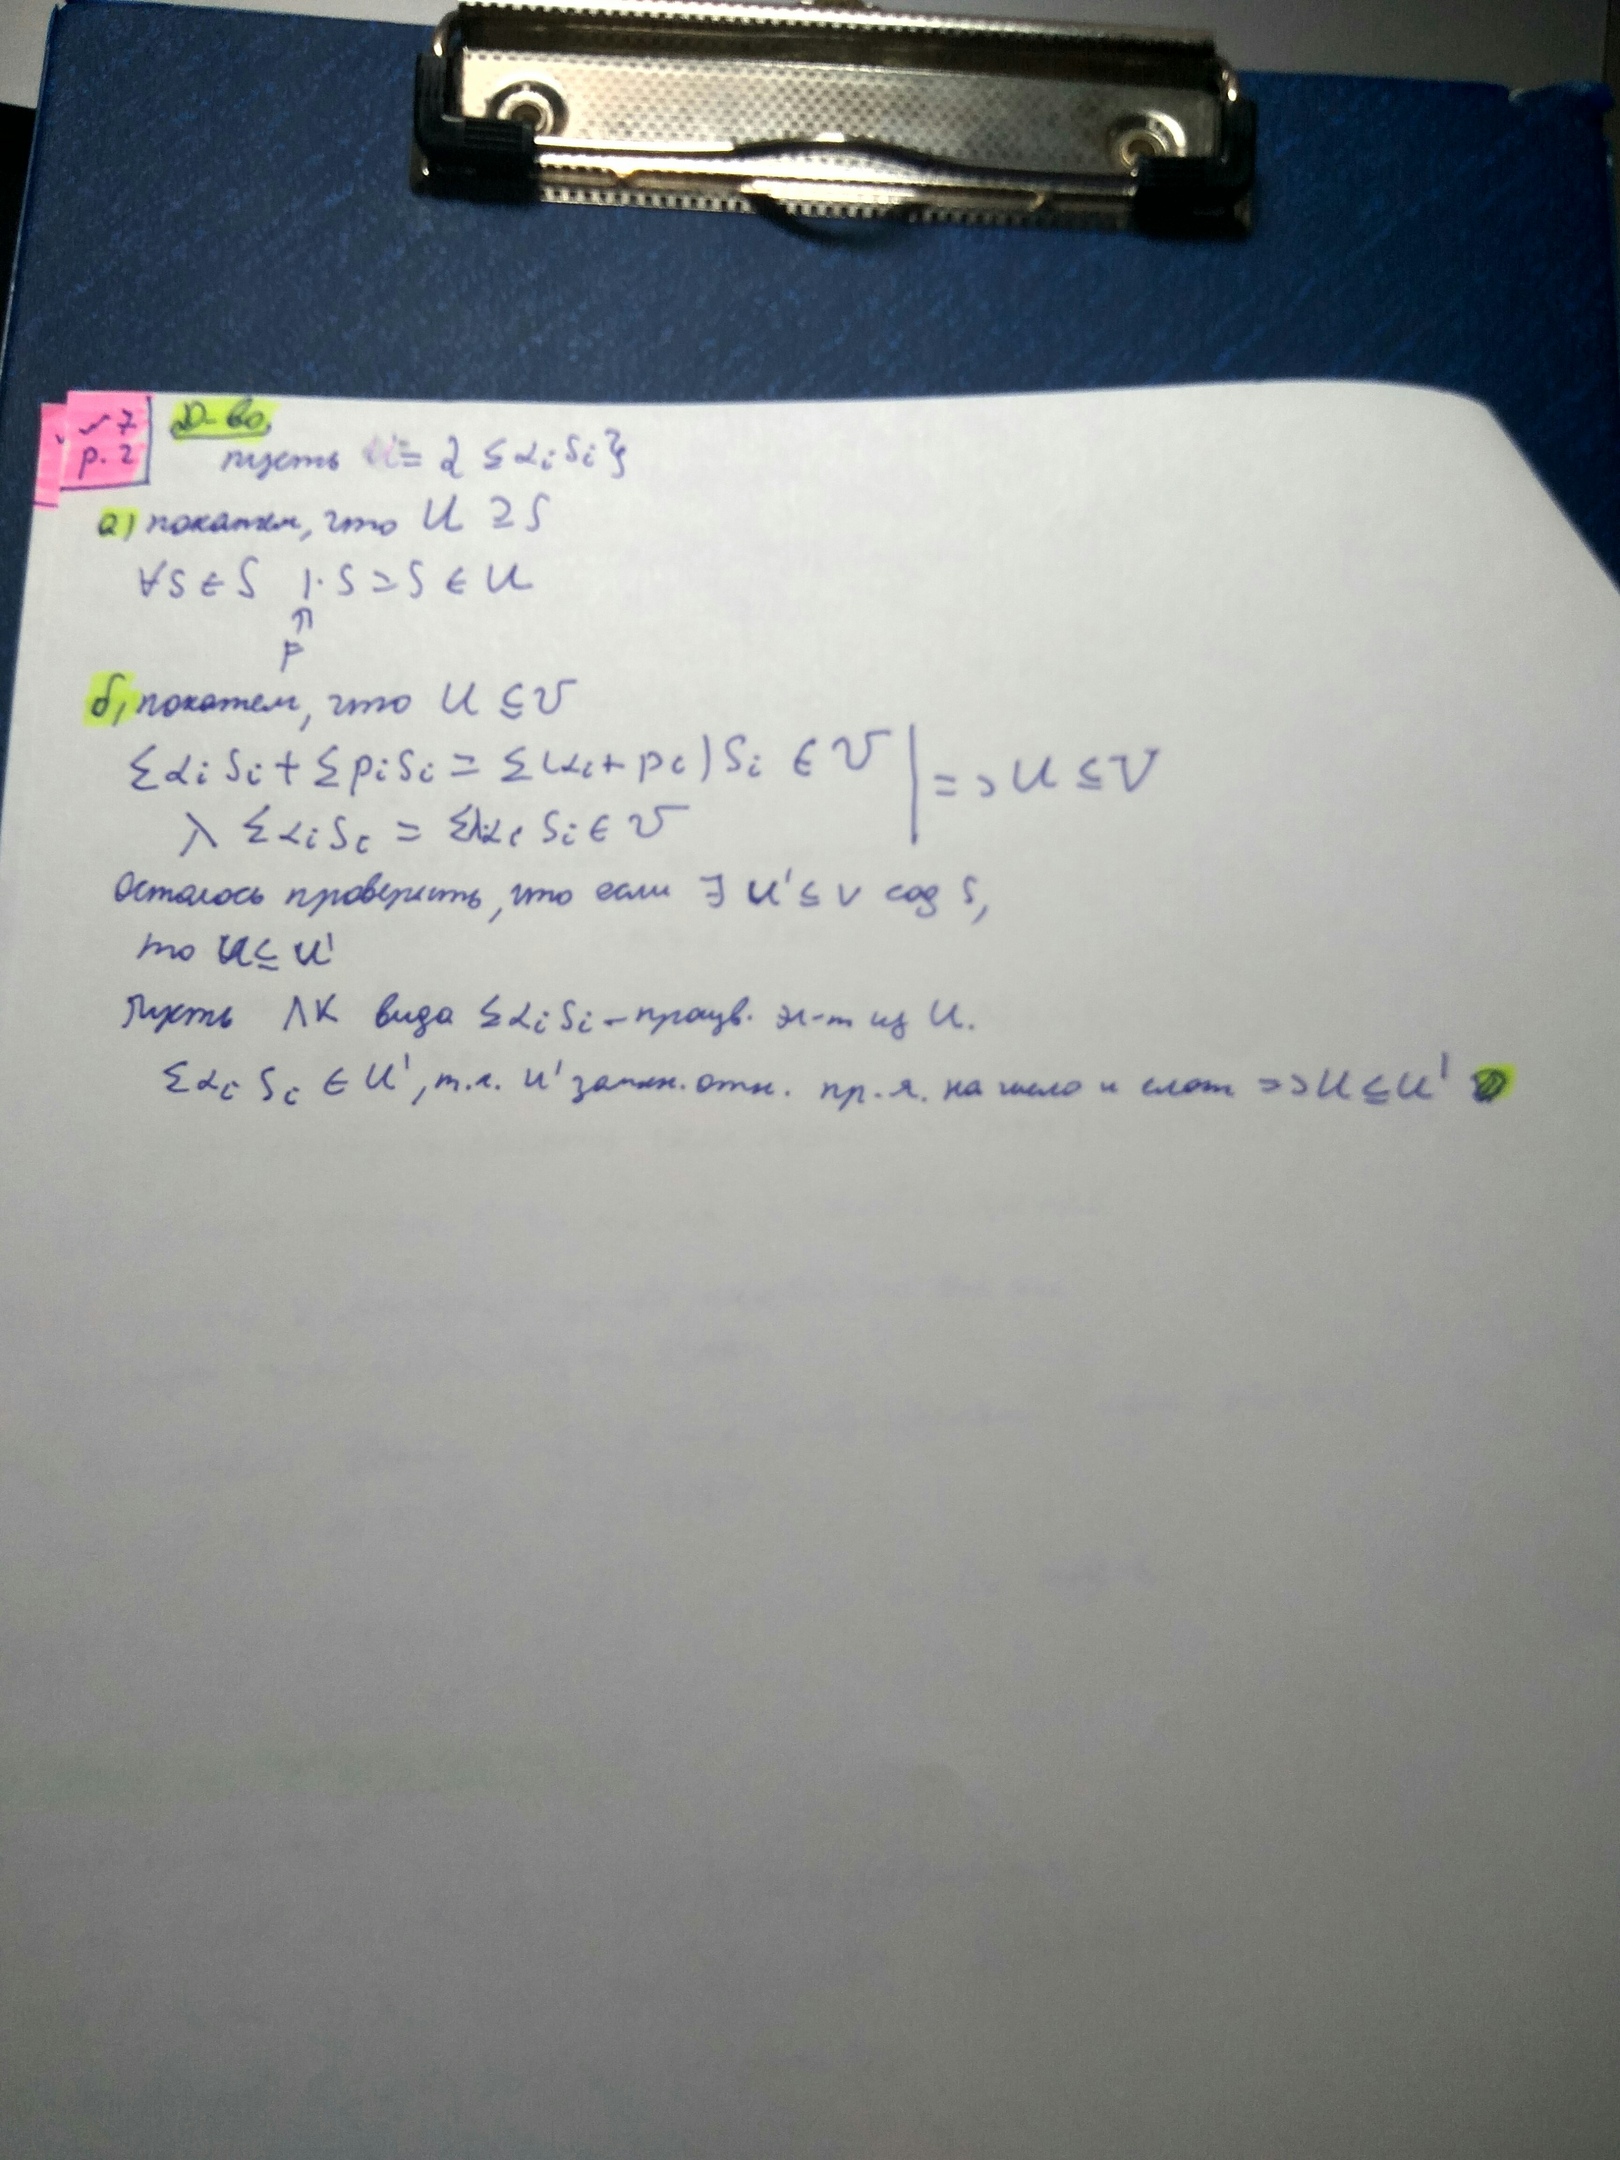 ~7
р. 2
Д-во
пусть = { Σ αᵢ Sᵢ }
а) покажем, что U ⊇ S
∀s ∈ S 1·S = S ∈ U
⇑
F
б) покажем, что U ⊆ V
Σ αᵢ Sᵢ + Σ βᵢ Sᵢ = Σ (αᵢ + βᵢ) Sᵢ ∈ V | => U ⊆ V
λ Σ αᵢ Sᵢ = Σ λαᵢ Sᵢ ∈ V
Осталось проверить, что если ∃ U' ⊆ V сод S,
то U ⊆ U'
Пусть ЛК вида Σ αᵢ Sᵢ – произв. эл-т из U.
Σ αᵢ Sᵢ ∈ U', т.к. U' замкн. отн. пр-я. на число и слож => U ⊆ U'